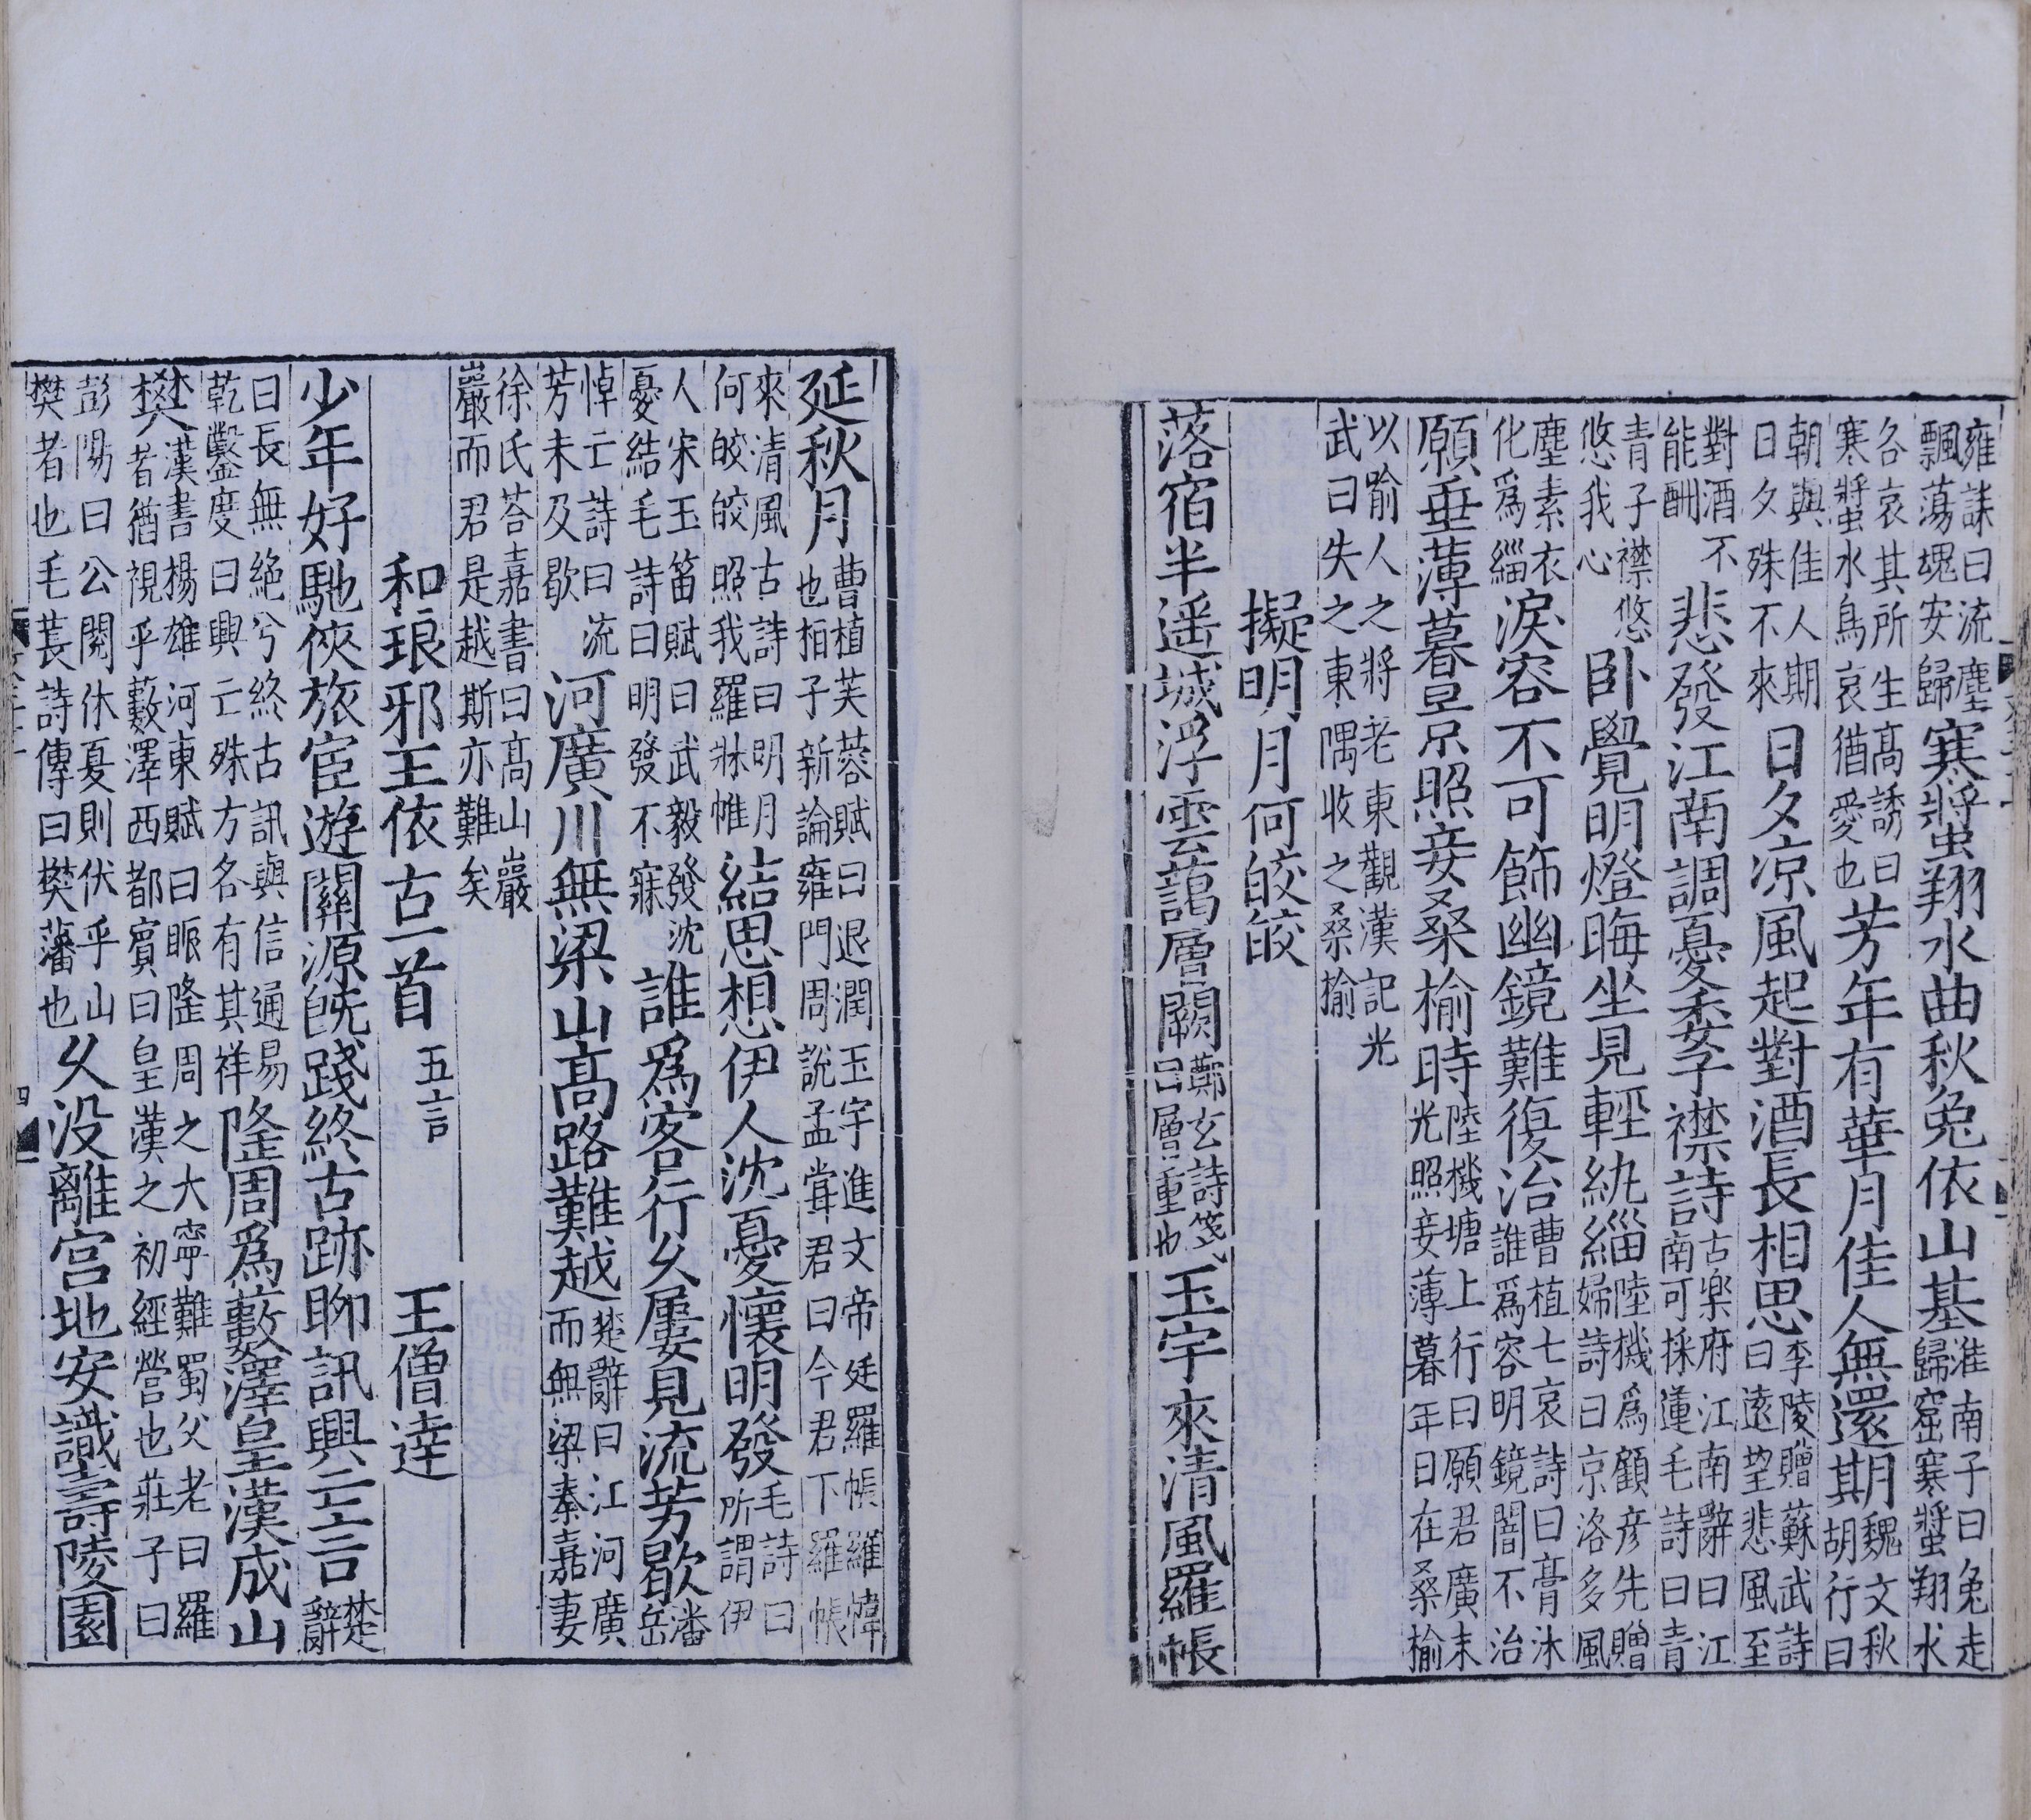 雍誄曰流塵飄蕩塊安歸寒螿翔水曲秋兔依山基淮南子曰兔走歸窟寒螿翔水
各哀其所生高誘曰寒螿水鳥哀猶愛也芳年有華月佳人無還期魏文秋胡行曰
朝與佳人期日夕殊不來日夕凉風起對酒長相思李陵贈蘇武詩曰遠望悲風至
對酒不能酬悲發江南調憂委子襟詩古樂府江南辭曰江南可採蓮毛詩曰青
青子襟悠悠我心卧覺明燈晦坐見輕紈緇陸機爲顧彦先贈婦詩曰京洛多風
塵素衣化爲緇淚容不可飾幽鏡難復治曹植七哀詩曰膏沐誰爲容明鏡闇不治
願垂薄暮景照妾桑榆時陸機塘上行曰願君廣末光照妾薄暮年日在桑榆
以喻人之將老東觀漢記光武曰失之東隅收之桑榆
擬明月何皎皎
落宿半遥城浮雲藹層闕鄭玄詩箋曰層重也玉宇來清風羅帳
延秋月曹植芙蓉賦曰退潤玉宇進文帝廷羅帳羅幃也栢子新論雍門周說孟甞君曰今君下羅帳
來清風古詩曰明月何皎皎照我羅牀帷結思想伊人沈憂懷明發毛詩曰所謂伊
人宋玉笛賦曰武毅發沈憂結毛詩曰明發不寐誰爲客行久屢見流芳歇潘岳
悼亡詩曰流芳未及歇河廣川無梁山高路難越楚辭曰江河廣而無梁秦嘉妻
徐氏荅嘉書曰高山巖巖而君是越斯亦難矣
和琅邪王依古一首 五言 王僧達
少年好馳俠旅宦遊關源旣踐終古跡聊訊興亡言楚辭
曰長無絶兮終古訊與信通易乾鑿度曰興亡殊方名有其祥隆周爲藪澤皇漢成山
樊漢書揚雄河東賦曰眽隆周之大寧難蜀父老曰羅者猶視乎藪澤西都賓曰皇漢之初經營也莊子曰
彭陽曰公閱休夏則伏乎山樊者也毛萇詩傳曰樊藩也久没離宫地安識壽陵園
四